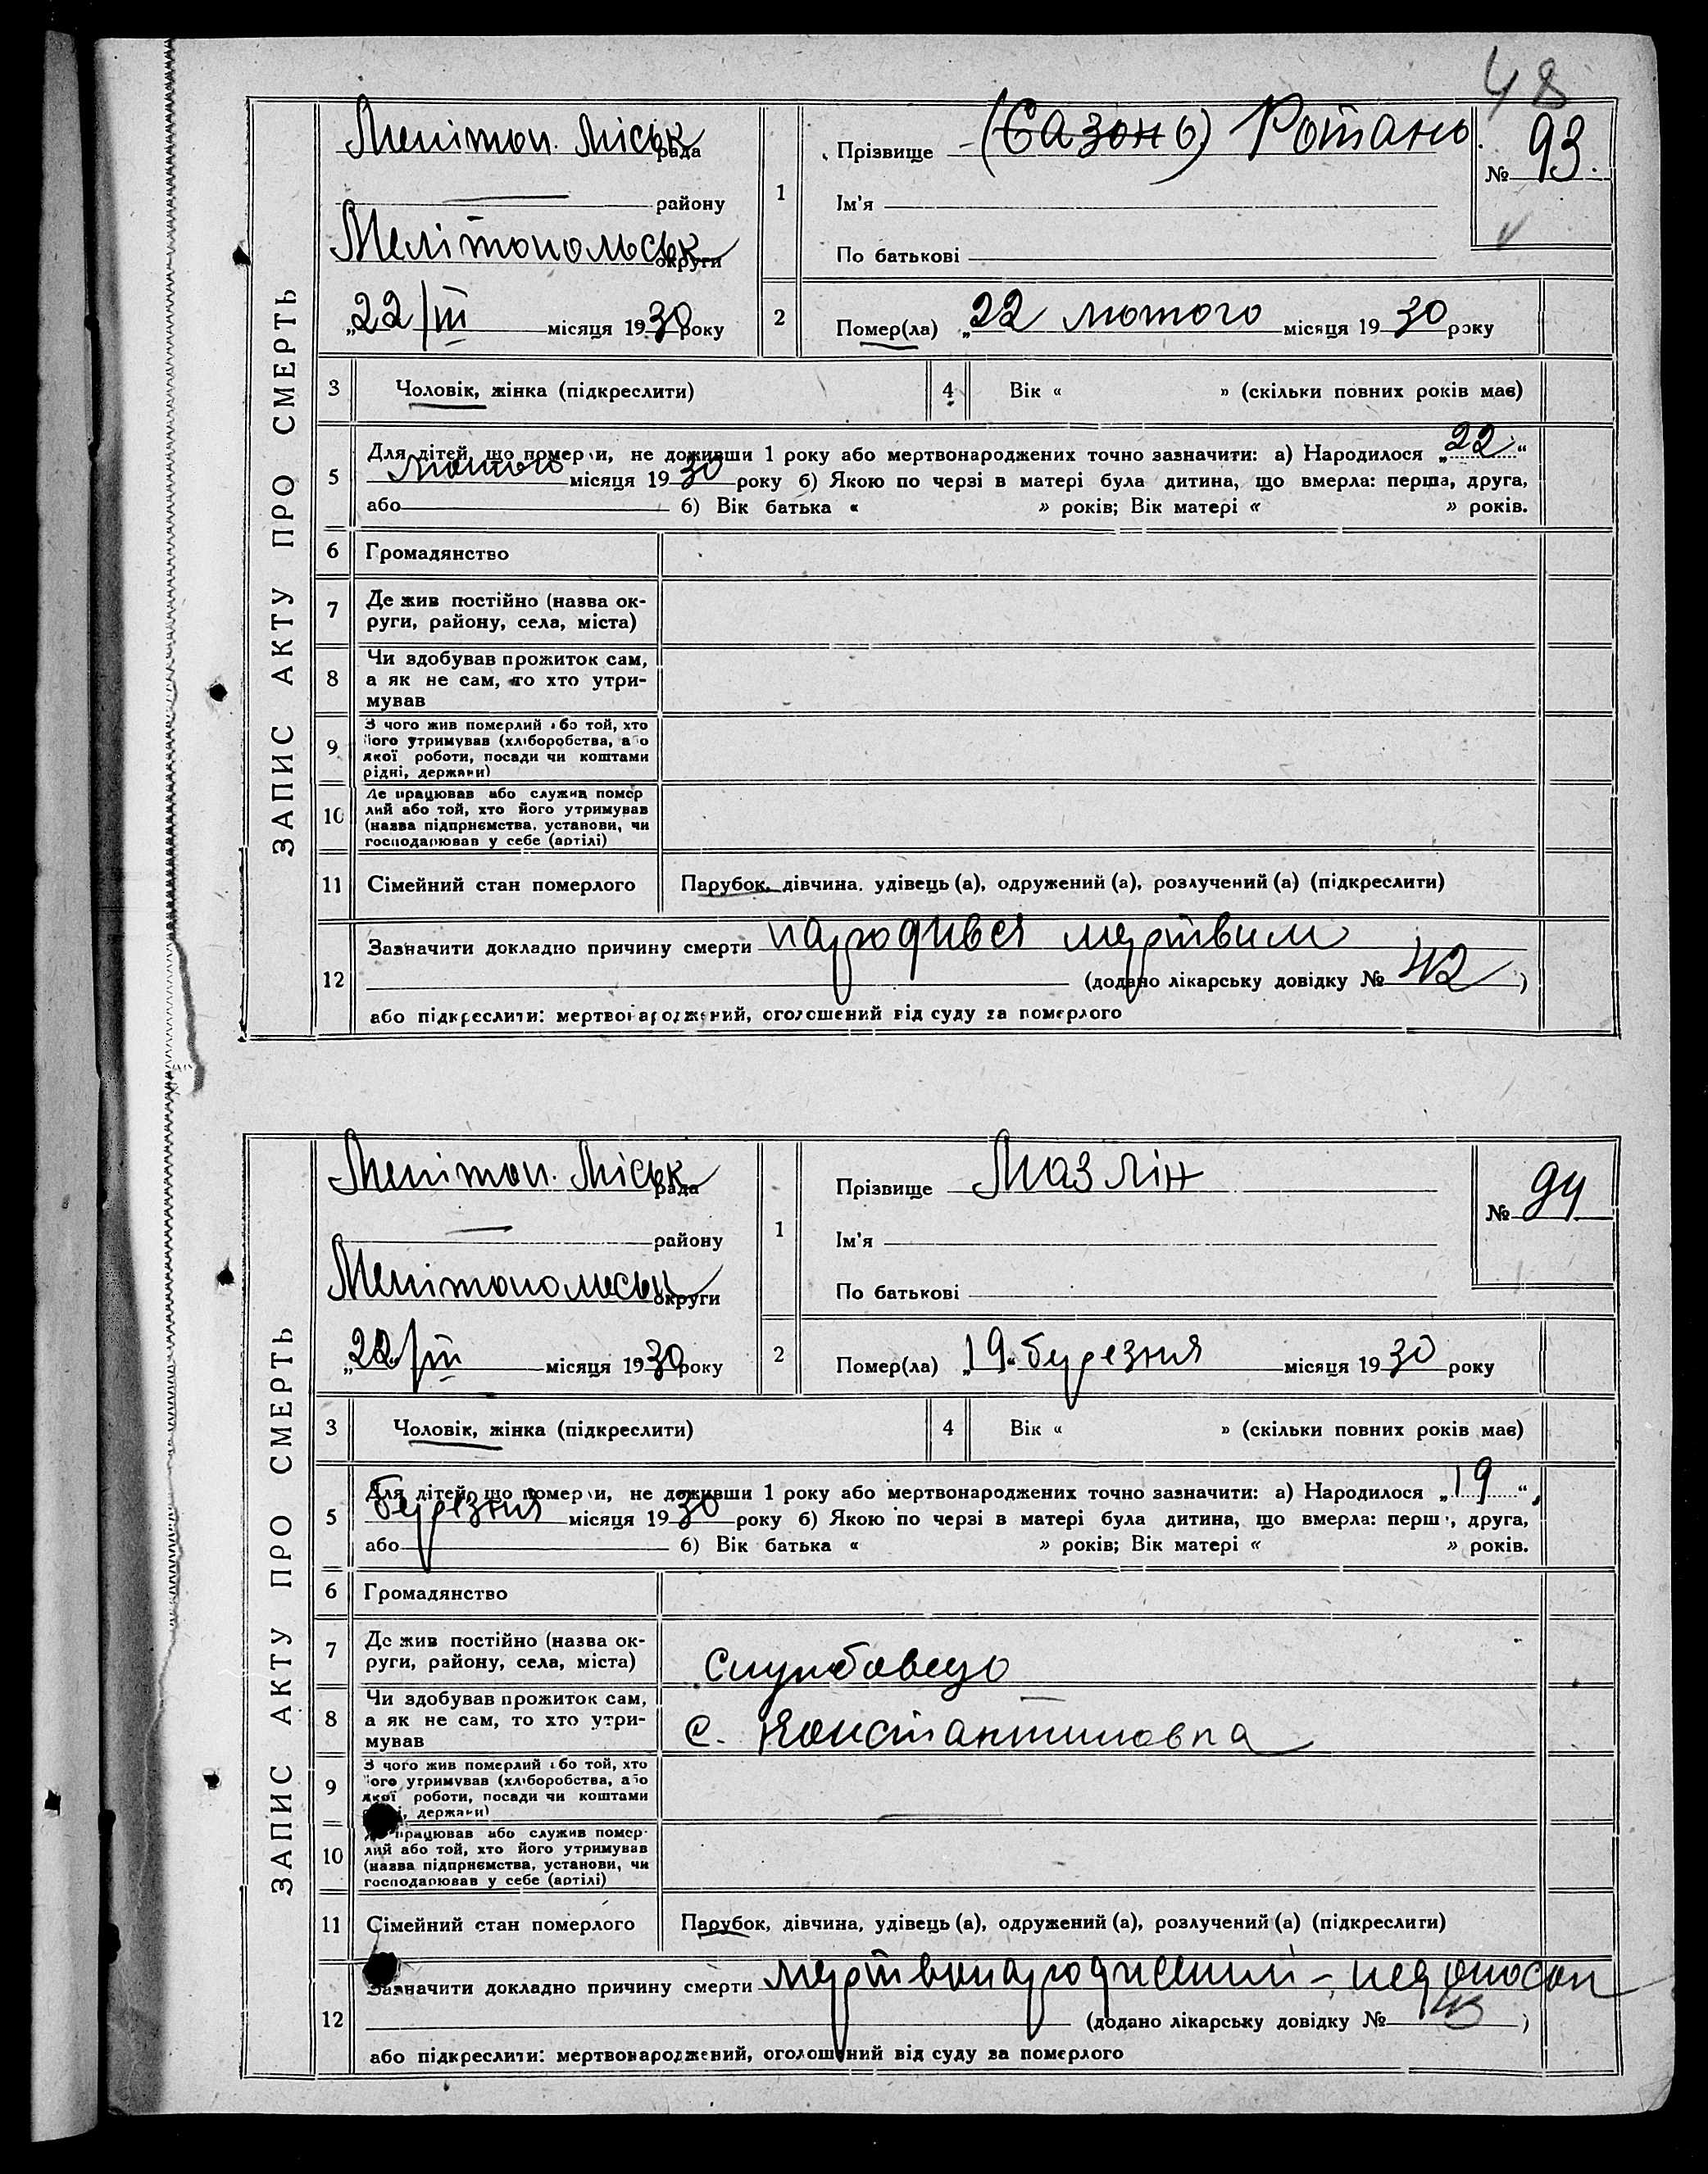 48
ЗАПИС АКТУ ПРО СМЕРТЬ
Меліт​оп. Міськ рада
району
Мелітопольськ округи
„22/III місяця 1930 року
1
Прізвище (Сазонь) Ротань.
Ім'я
По батькові
№ 93.
2
Помер(ла) „22 лютого місяця 1930 року
3 Чоловік, жінка (підкреслити)
4 Вік « » (скільки повних років має)
5 Для дітей, що померли, не доживши 1 року або мертвонароджених точно зазначити: а) Народилося „22“
лютого місяця 1930 року б) Якою по черзі в матері була дитина, що вмерла: перша, друга,
або б) Вік батька « » років; Вік матері « » років.
6 Громадянство
7 Де жив постійно (назва ок-
руги, району, села, міста)
8 Чи здобував прожиток сам,
а як не сам, то хто утри-
мував
9 З чого жив померлий або той, хто
його утримував (хліборобства, або
якої роботи, посади чи коштами
рідні, держави)
10 Де працював або служив помер
лий або той, хто його утримував
(назва підприємства, установи, чи
господарював у себе (артілі)
11 Сімейний стан померлого Парубок, дівчина, удівець (а), одружений (а), розлучений (а) (підкреслити)
12 Зазначити докладно причину смерти народився мертвим
(додано лікарську довідку № 42 )
або підкреслити: мертвонароджений, оголошений від суду за померлого
ЗАПИС АКТУ ПРО СМЕРТЬ
Мелітоп. Міськ рада
району
Мелітопольськ округи
„22/III місяця 1930 року
1
Прізвище Мазлін
Ім'я
По батькові
№ 94
2
Помер(ла) „19 березня місяця 1930 року
3 Чоловік, жінка (підкреслити)
4 Вік « » (скільки повних років має)
5 Для дітей, що померли, не доживши 1 року або мертвонароджених точно зазначити: а) Народилося „19“
березня місяця 1930 року б) Якою по черзі в матері була дитина, що вмерла: перша, друга,
або б) Вік батька « » років; Вік матері « » років.
6 Громадянство
7 Де жив постійно (назва ок-
руги, району, села, міста) службовець
8 Чи здобував прожиток сам,
а як не сам, то хто утри-
мував с. Константиновка
9 З чого жив померлий або той, хто
його утримував (хліборобства, або
якої роботи, посади чи коштами
рідні, держави)
10 Де працював або служив помер-
лий або той, хто його утримував
(назва підприємства, установи, чи
господарював у себе (артілі)
11 Сімейний стан померлого Парубок, дівчина, удівець (а), одружений (а), розлучений (а) (підкреслити)
12 Зазначити докладно причину смерти мертвонароджений - недоносок
(додано лікарську довідку № 43 )
або підкреслити: мертвонароджений, оголошений від суду за померлого